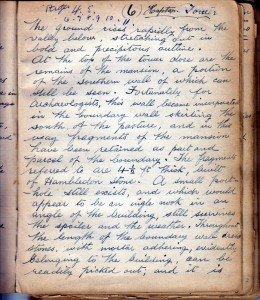 Page 4. 5.
6. 7. 8. 9. 10. 11.
(6)
The ground rises rapidly from the
valley below, stretching out in
bold and precipitous outline.
At the top of the tower close are the
remains of the mansion, a portion
of the southern wall of which can
still be seen. Fortunately for
Archaeologists, this wall became incorporated
in the boundary wall skirting the
south of the pasture, and in this
way fragments of the mansion
have been retained as part and
parcel of the boundary. The fragment
referred to are 4½ ft thick, built
of Hambledon Stone. A small port-
hole still exists, and which would
appear to be an ingle nook in an
angle of the building, still survives
the spoiler and the weather. Throughout
the length of the boundary wall dress
stones, with mortar adhering, evidently
belonging to the building, can be
readily picked out, and it is